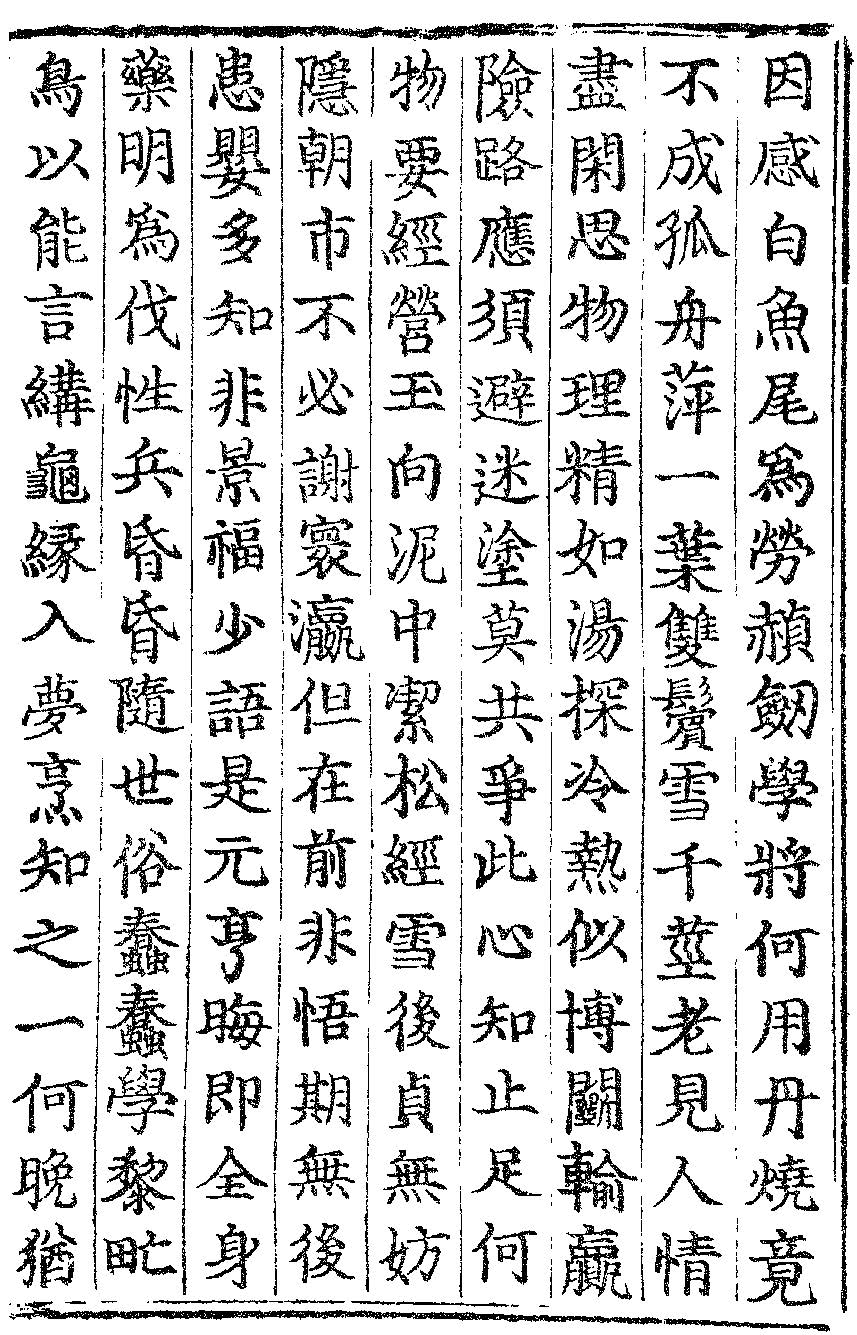 因感白魚尾爲勞赬劒學將何用丹燒竟
不成孤舟萍一葉雙鬢雪千莖老見人情
盡閑思物理精如湯探冷熱似博鬭輸贏
險路應須避迷塗莫共爭此心知止足何
物要經營玉向泥中潔松經雪後貞無妨
隱朝市不必謝寰瀛但在前非悟期無後
患嬰多知非景福少語是元亨晦即全身
藥明爲伐性兵昏昏隨世俗蠢蠢學黎甿
鳥以能言緤龜緣入夢烹知之一何晚猶